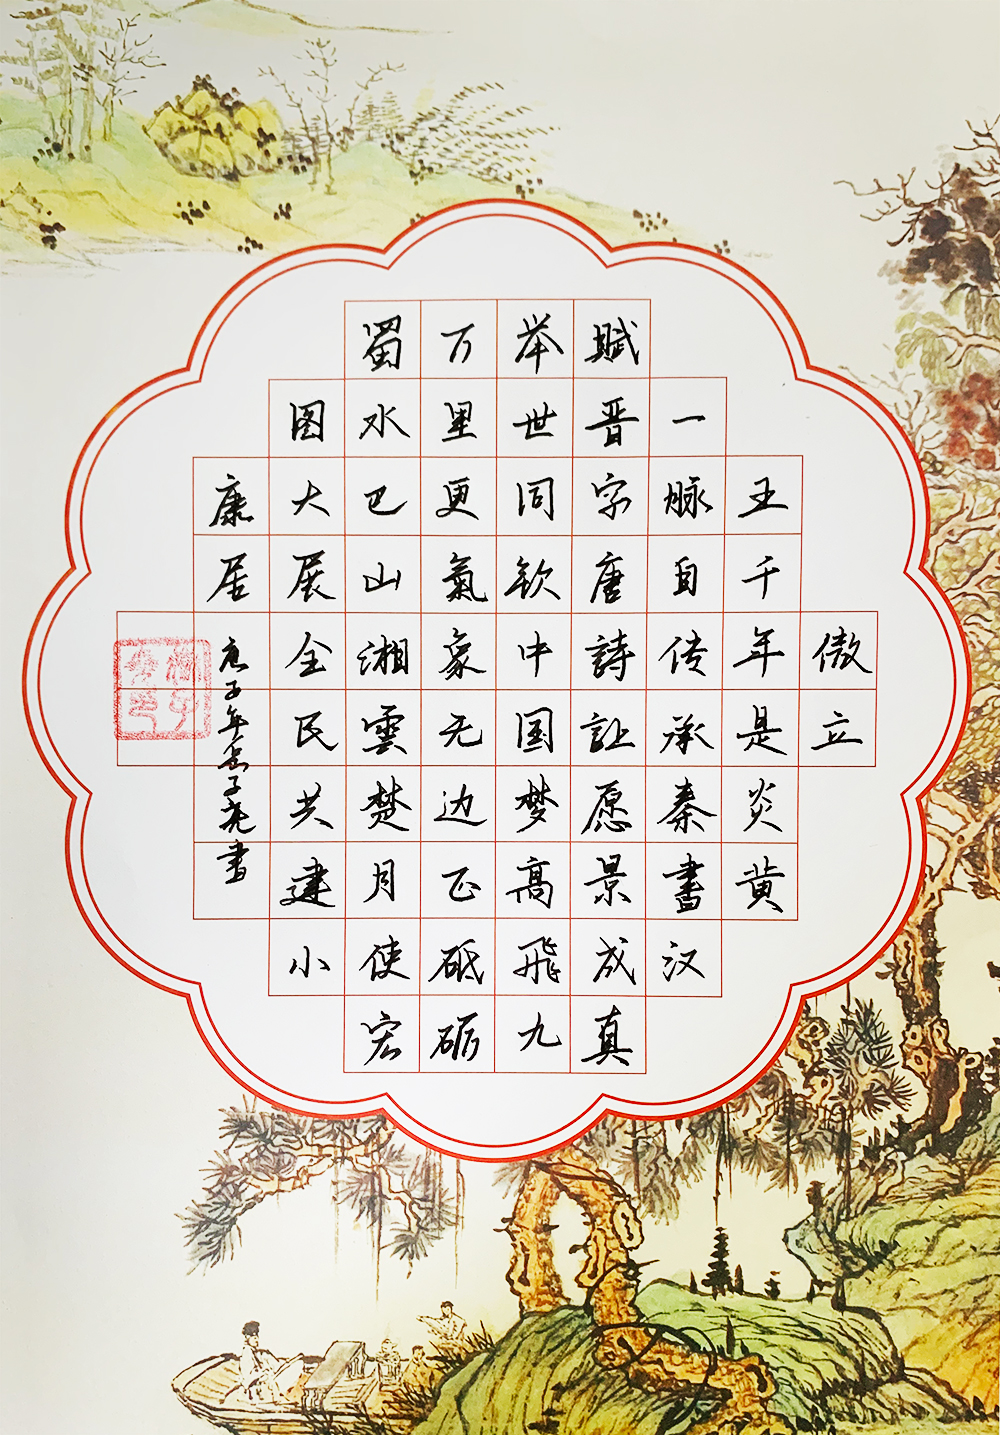 傲立
五千年是炎黄
一脉自传承秦書汉
賦晋字唐詩让愿景成真
举世同钦中国梦高飛九
万里更氣象无边正砥砺
蜀水巴山湘雲楚月使宏
图大展全民共建小
康居
庚子年岳子 書